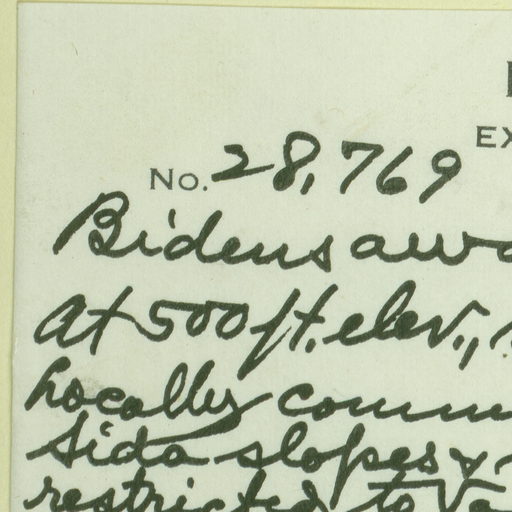 EX
No. 28,769
Bidens awa
At 500 ft. elev.,
Locally comm
Sida slopes &
restricted to Va